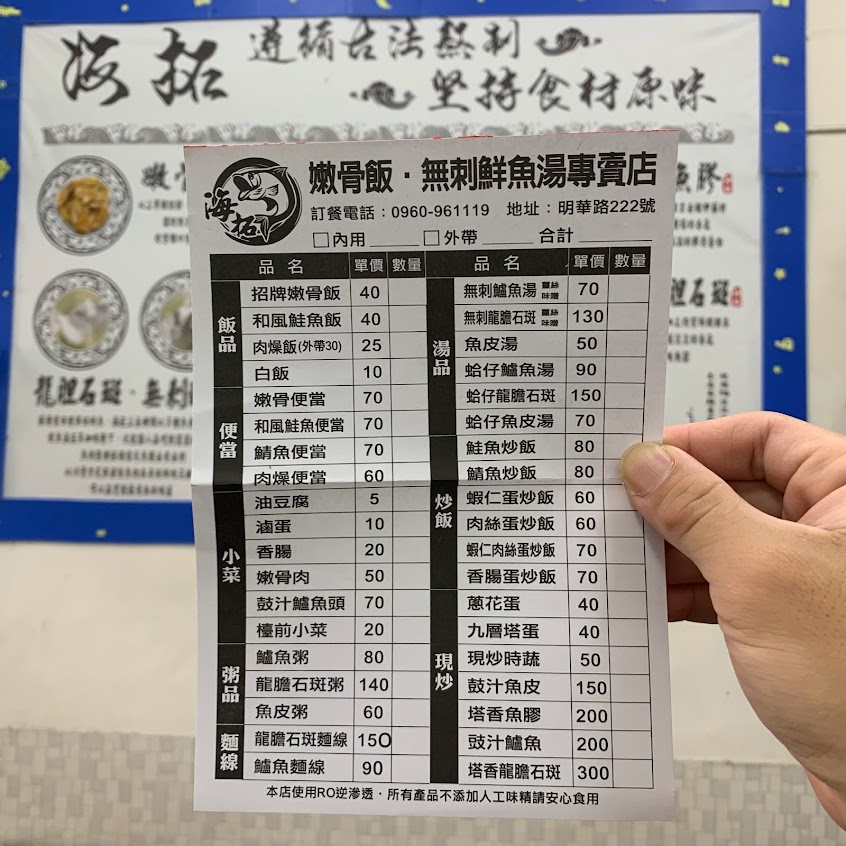 海拓 遵循古法熬制
坚持食材原味
海拓
嫩骨飯·無刺鮮魚湯專賣店
訂餐電話：0960-961119 地址：明華路222號
□內用 □外帶 合計
品名 單價 數量
飯品
招牌嫩骨飯 40
和風鮭魚飯 40
肉燥飯(外帶30) 25
白飯 10
便當
嫩骨便當 70
和風鮭魚便當 70
鯖魚便當 70
肉燥便當 60
小菜
油豆腐 5
滷蛋 10
香腸 20
嫩骨肉 50
鼓汁鱸魚頭 70
檯前小菜 20
粥品
鱸魚粥 80
龍膽石斑粥 140
魚皮粥 60
麵線
龍膽石斑麵線 150
鱸魚麵線 90
品名 單價 數量
湯品
無刺鱸魚湯 薑絲 味噌 70
無刺龍膽石斑 薑絲 味噌 130
魚皮湯 50
蛤仔鱸魚湯 90
蛤仔龍膽石斑 150
蛤仔魚皮湯 70
炒飯
鮭魚炒飯 80
鯖魚炒飯 80
蝦仁蛋炒飯 60
肉絲蛋炒飯 60
蝦仁肉絲蛋炒飯 70
香腸蛋炒飯 70
現炒
蔥花蛋 40
九層塔蛋 40
現炒時蔬 50
鼓汁魚皮 150
塔香魚膠 200
鼓汁鱸魚 200
塔香龍膽石斑 300
本店使用RO逆滲透，所有產品不添加人工味精請安心食用
魚膠
龍膽石斑